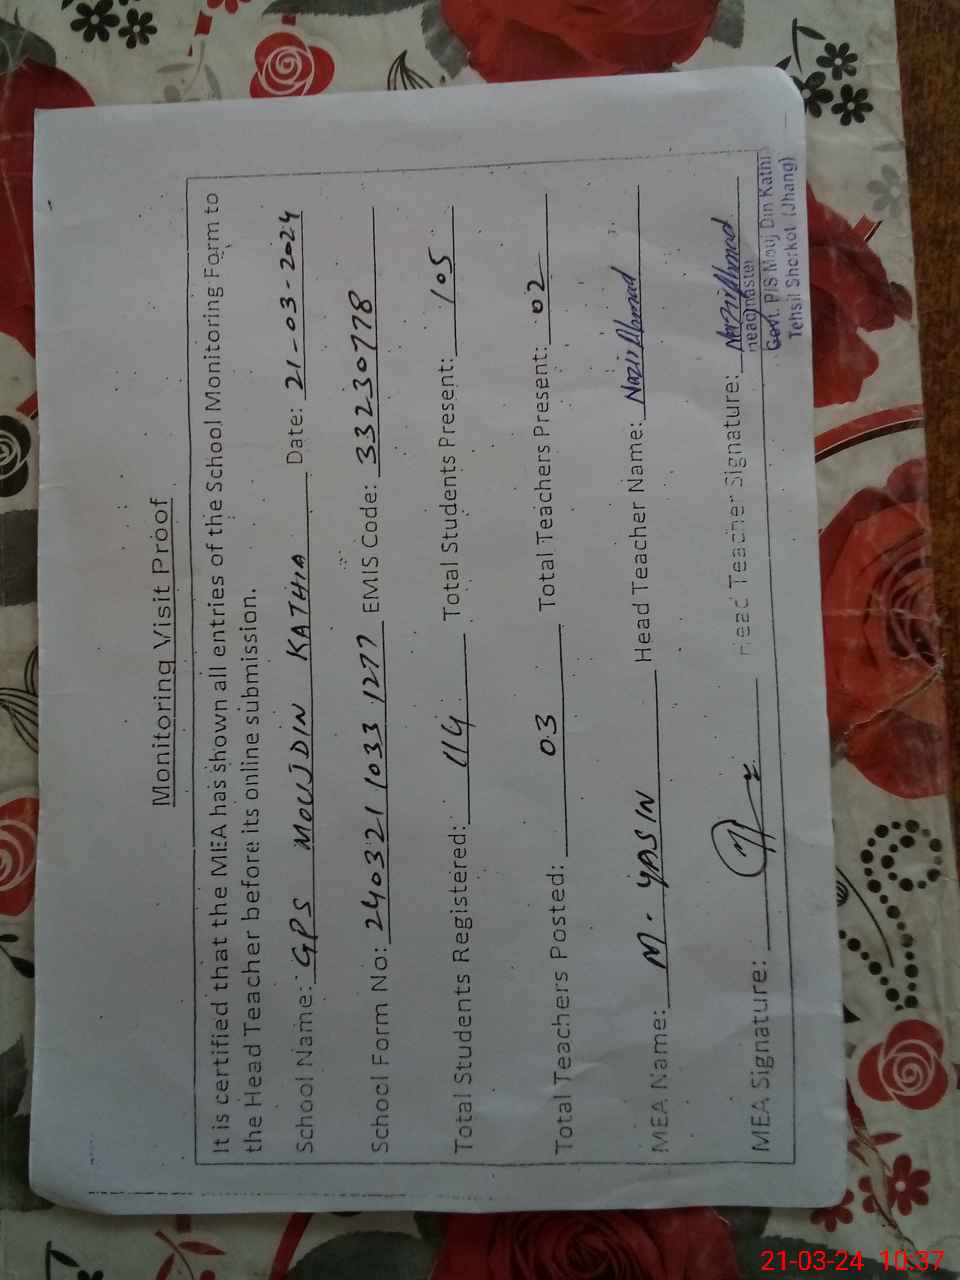 Monitoring Visit Proof
It is certified that the MEA has shown all entries of the School Monitoring Form to
the Head Teacher before its online submission.
School Name: GPS MOUJDIN KATHIA Date: 21-03-2024
School Form No: 2403211033 1277 EMIS Code: 33230778
Total Students Registered: 114 Total Students Present: 105
Total Teachers Posted: 03 Total Teachers Present: 02
MEA Name: M. YASIN Head Teacher Name: Nazir Ahmad
MEA Signature: Head Teacher Signature: Nazir Ahmad
Headmaster
Govt. P/S Mouj Din Kathi
Tehsil Shorkot (Jhang)
21-03-24 10:37